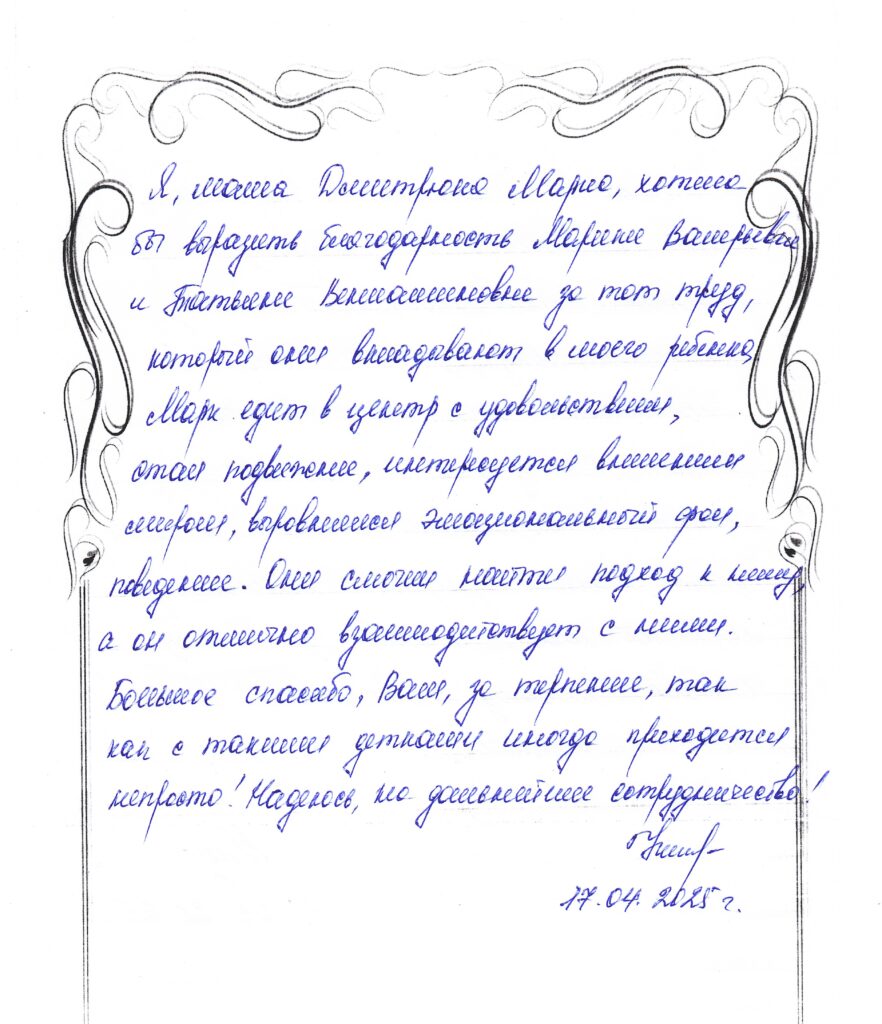 Я, мама Дмитрюка Марка, хотела
бы выразить благодарность Марине Валерьевне
и Татьяне Вениаминовне за тот труд,
который они вкладывают в моего ребенка,
Марк едит в центр с удовольствием,
стал подвижнее, интересуется внешним
миром, выровнялся эмоциональный фон,
поведение. Они смогли найти подход к нему,
а он отлично взаимодействует с ними.
Большое спасибо, Вам, за терпение, так
как с такими детками иногда приходится
непросто! Надеюсь, на дальнейшее сотрудничество!
17.04.2025 г.